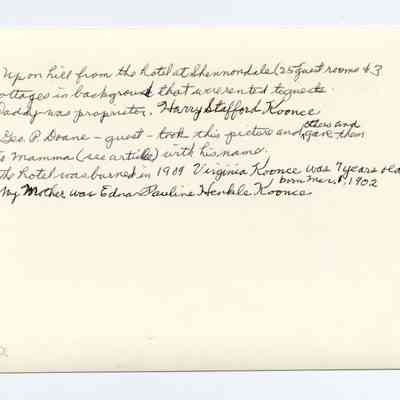 Up on hill from the hotel at Shennondale (25 guest rooms & 3
cottages in background that we rented to guests.
Daddy was proprietor. Harry Stafford Koonce
Geo. P. Doane - guest - took this picture and others and gave them
to Mamma (see article) with his name.
The hotel was burned in 1909 Virginia Koonce was 7 years old
born Mar. 1, 1902
My Mother was Edna Pauline Henkle Koonce